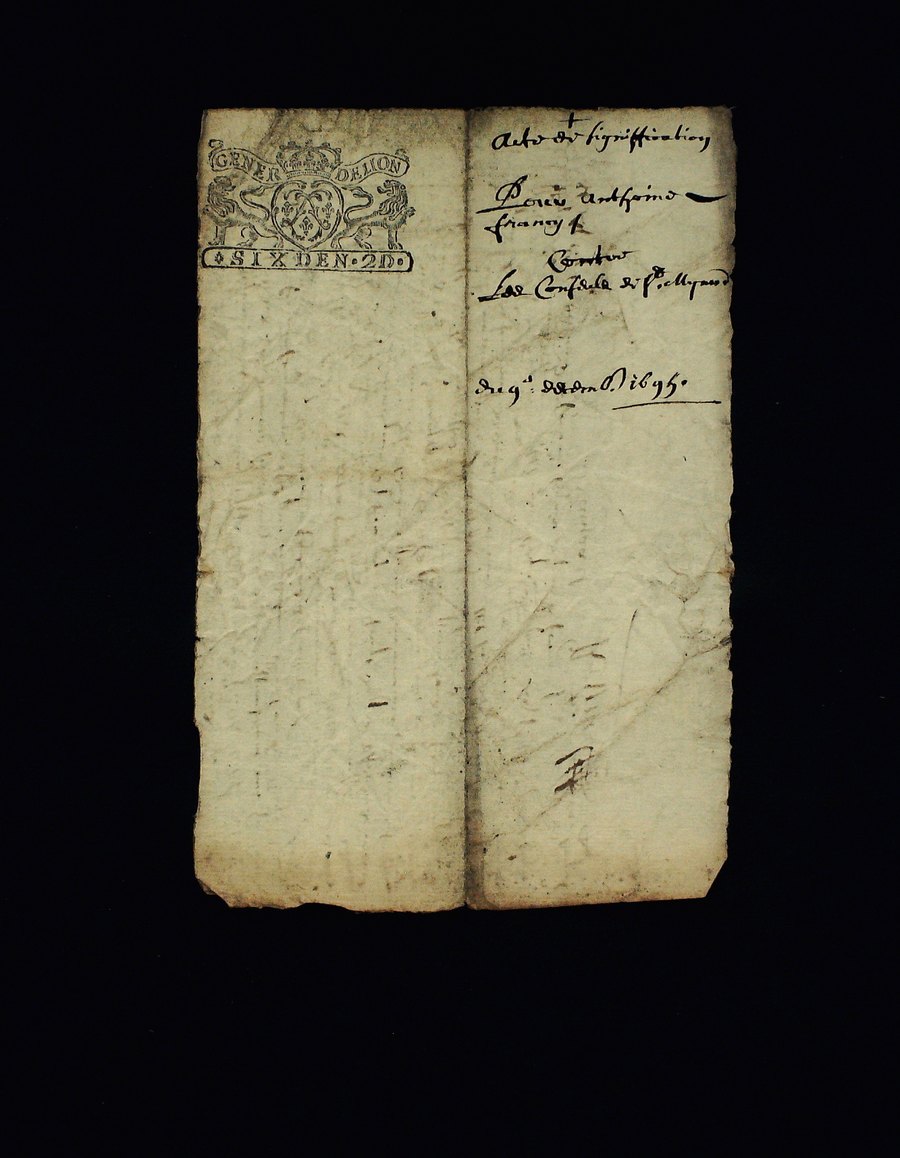 GENER DELION
SIX DEN · 2D ·
Acte de signiffication
Pour anthoine
francoy
Contre
Les Consuls de St.
du 9e. decemb. 1695.